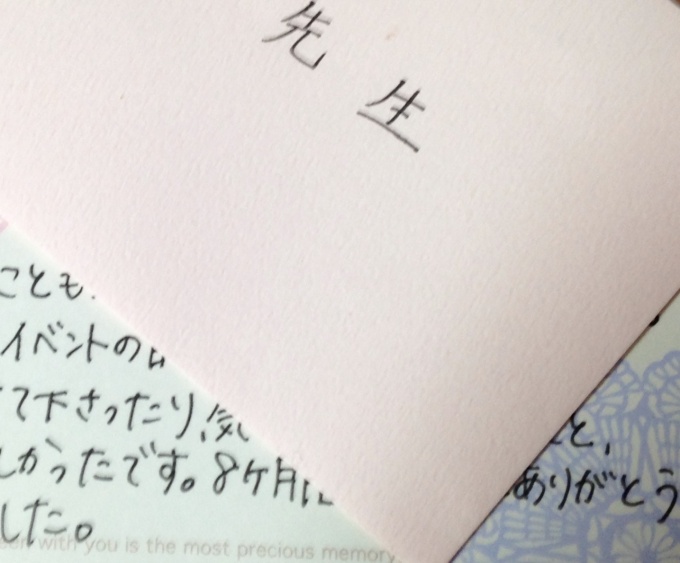 先生
ことも
イベントの
て下さったり、気 と、
しかったです。8ケ月 ありがとう
した。
with you is the most precious memory